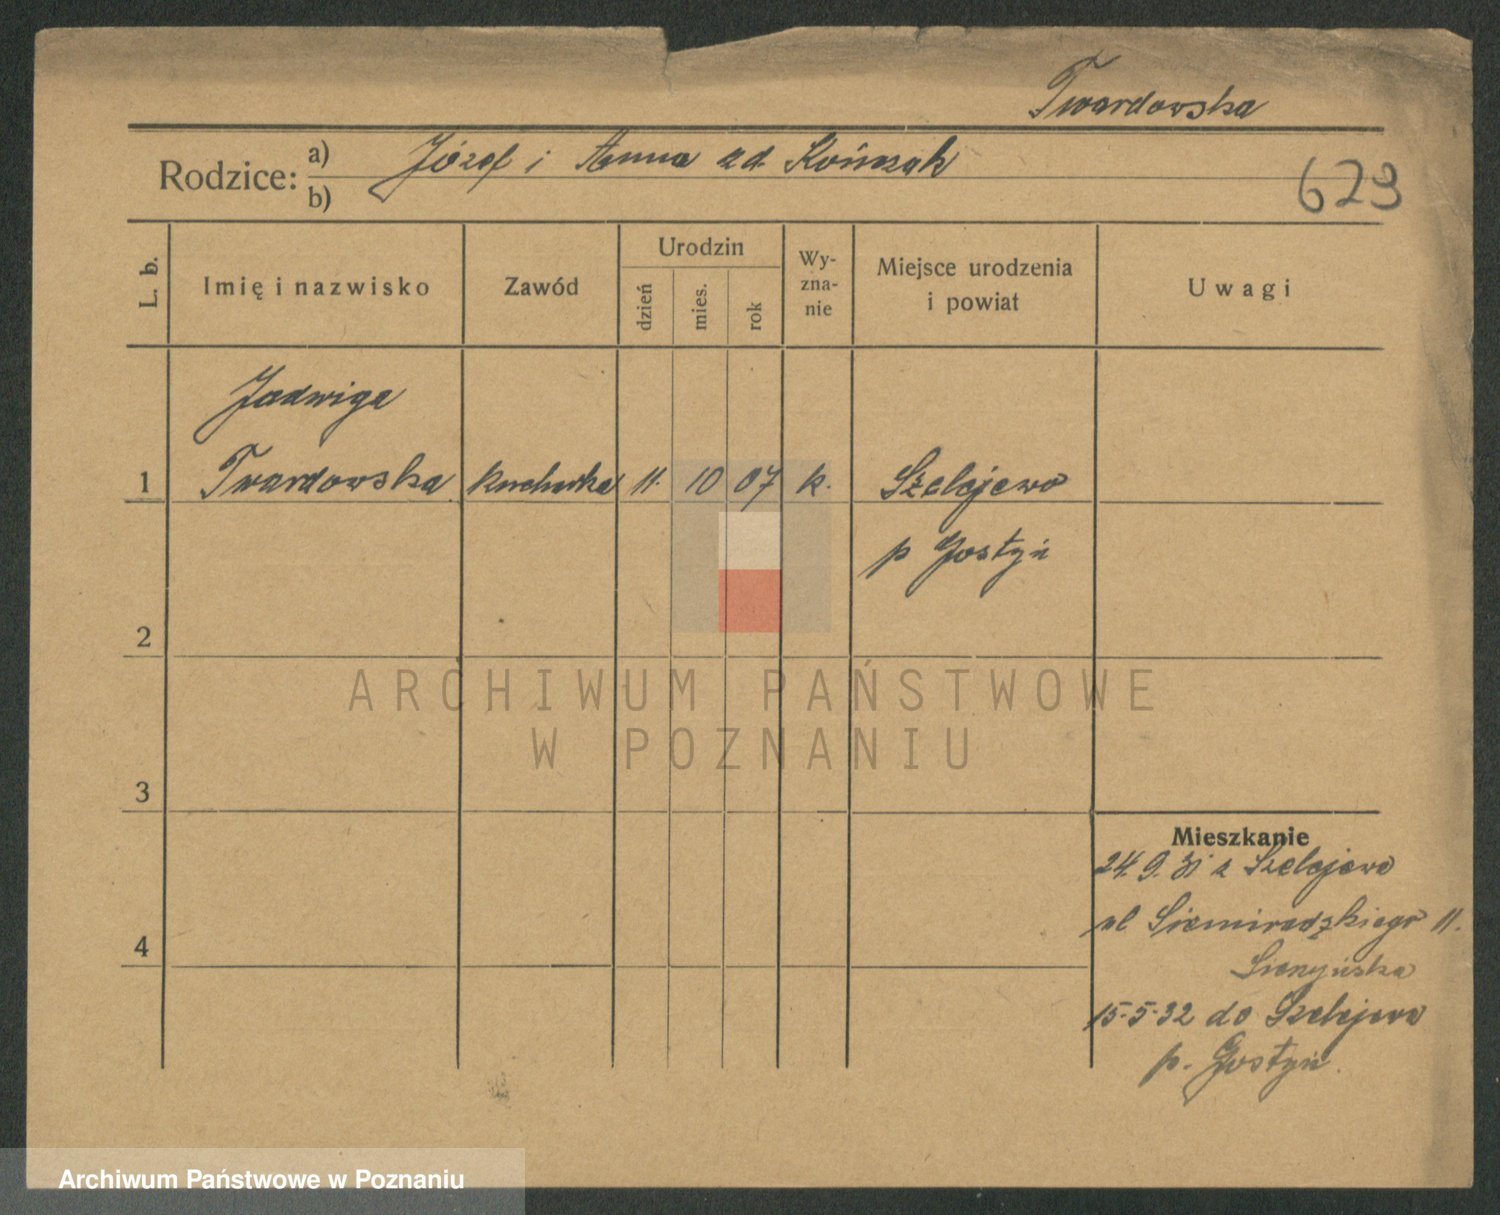 Twardowska
Rodzice: a) Józef i Anna zd. Kończak
b)
629
L. b.
Imię i nazwisko
Zawód
Urodzin
dzień
mies.
rok
Wy-
zna-
nie
Miejsce urodzenia
i powiat
Uwagi
Jadwiga
1 Twardowska kucharka 11. 10 07 k. Szelejewo
p Gostyń
2
3
4
Mieszkanie
24.9.31 z Szelejewa
ul Siemiradzkiego 11.
15.5.32 do Szelejewa
p. Gostyń.
ARCHIWUM PAŃSTWOWE
W POZNANIU
Archiwum Państwowe w Poznaniu